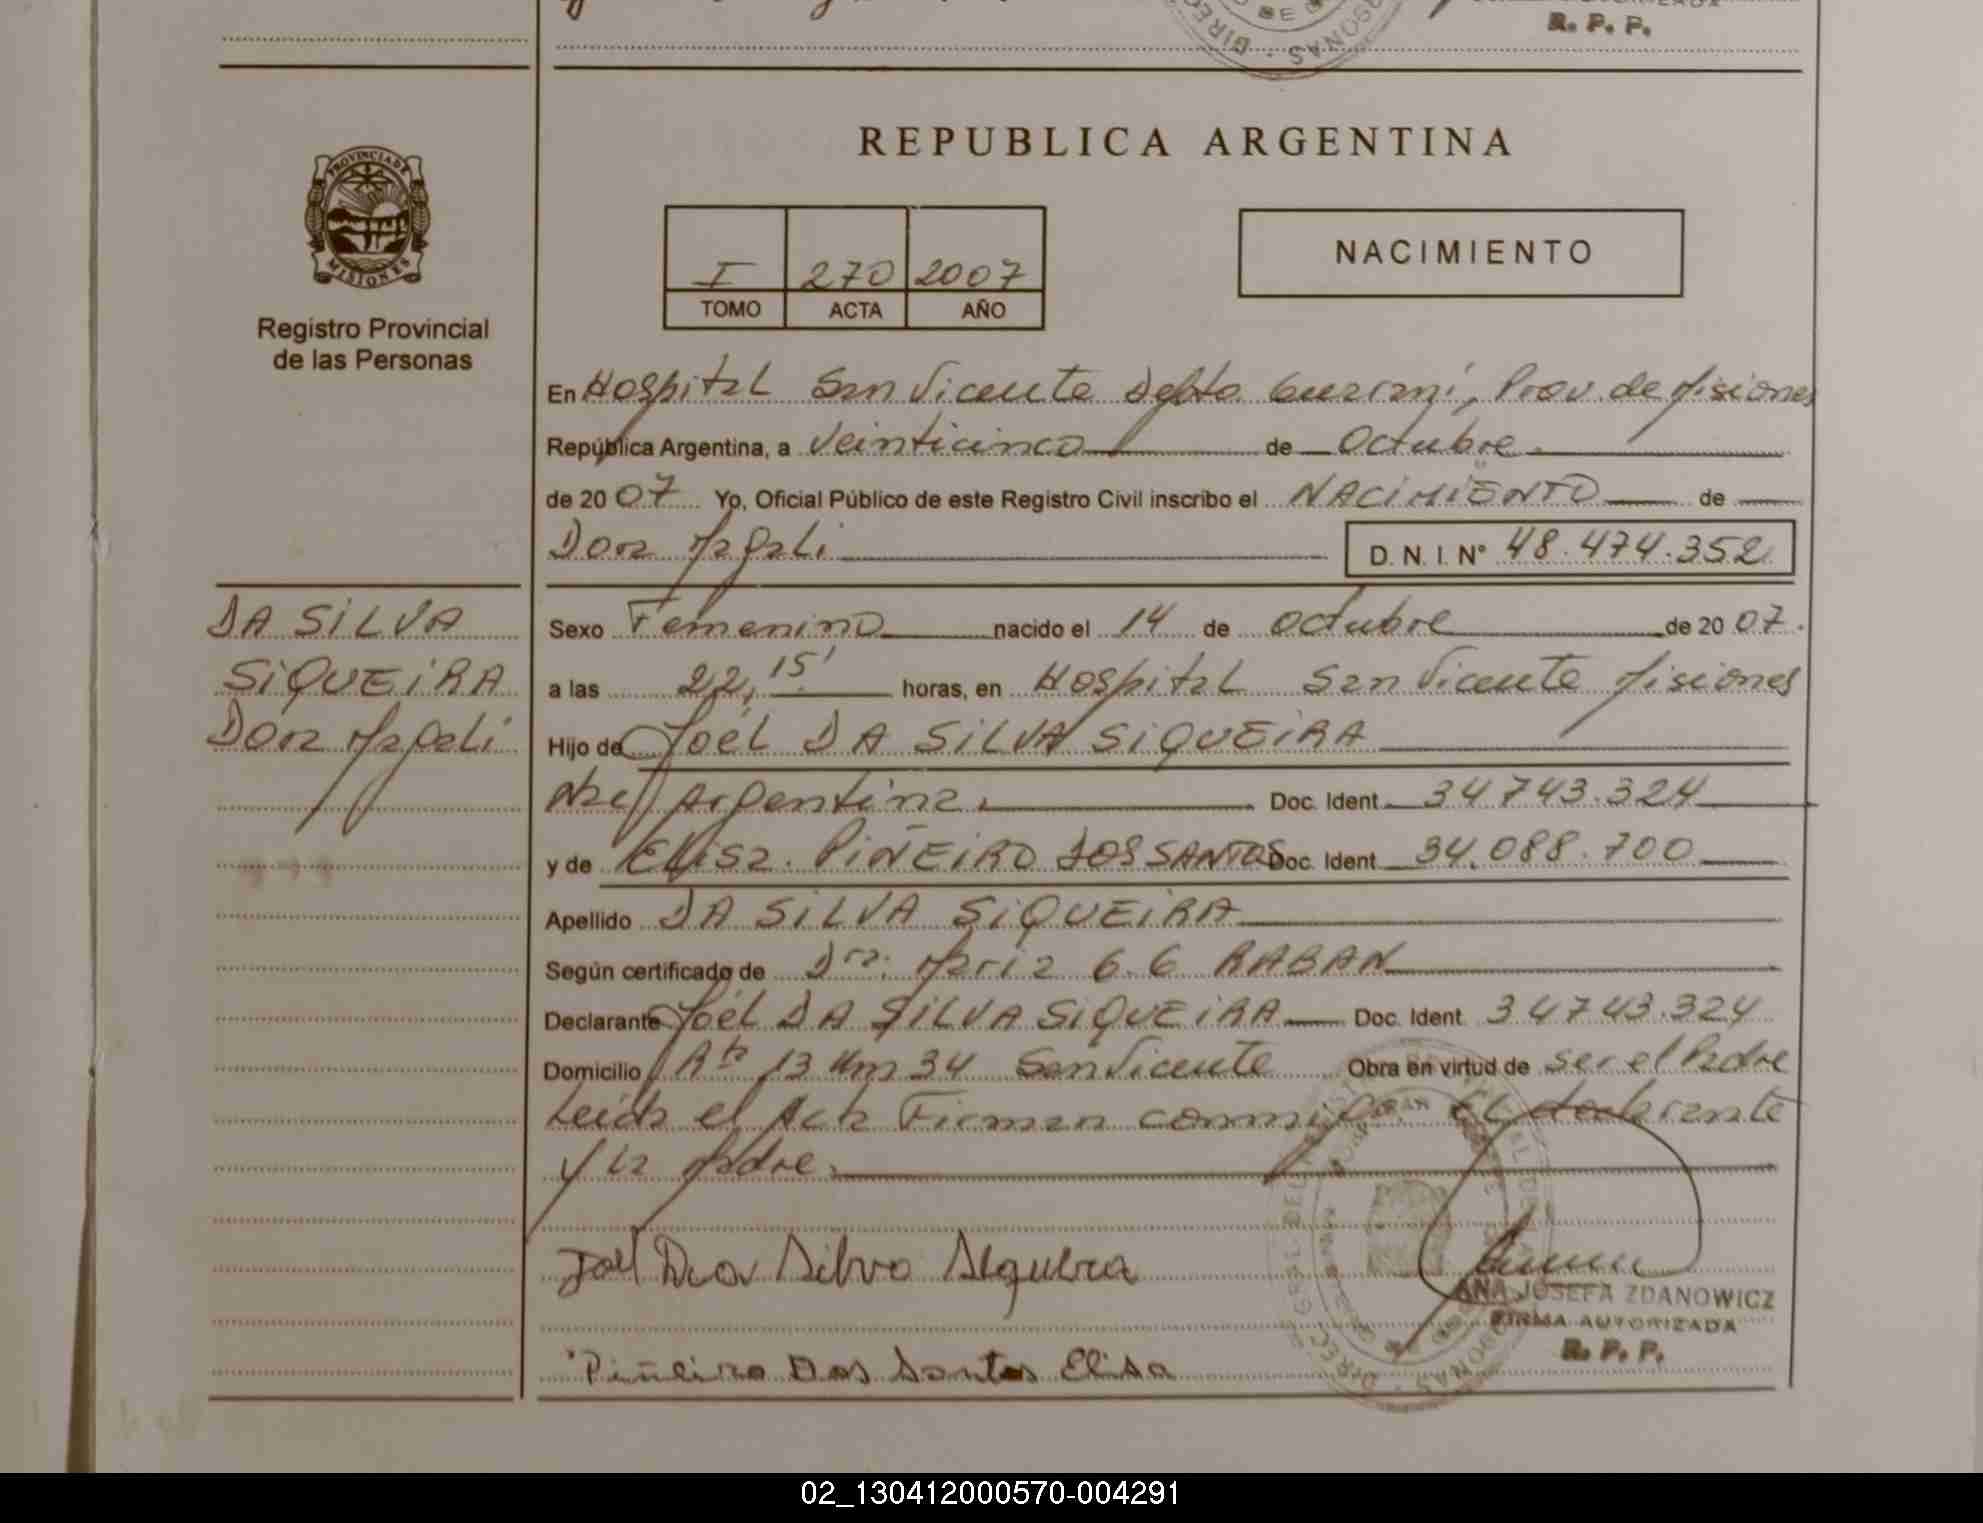 R. P. P.
REPUBLICA ARGENTINA
PROVINCIA DE
MISIONES
Registro Provincial
de las Personas
I 270 2007
TOMO ACTA AÑO
NACIMIENTO
En Hospital San Vicente Depto Guaraní, Prov. de Misiones
República Argentina, a veinticinco de Octubre
de 2007 Yo, Oficial Público de este Registro Civil inscribo el NACIMIENTO de
Dora Magali D. N. I. N° 48.474.352
DA SILVA
SIQUEIRA
Dora Magali
Sexo Femenino nacido el 14 de Octubre de 2007.
a las 22,15' horas, en Hospital San Vicente Misiones
Hijo de Joél DA SILVA SIQUEIRA
Argentina. Doc. Ident. 34743.324
y de Elisa. PIÑEIRO DOS SANTOS Doc. Ident. 34.088.700
Apellido DA SILVA SIQUEIRA
Según certificado de Dra. Maria G. G RABAN
Declarante Joél DA SILVA SIQUEIRA Doc. Ident. 34743.324
Domicilio Rta 13 Km 34 San Vicente Obra en virtud de ser el Padre
Leída el Acta Firman conmigo El declarante
y la Madre.
Joel Da Silva Siqueira
ANA JOSEFA ZDANOWICZ
FIRMA AUTORIZADA
R. P. P.
Piñeiro Dos Santos Elisa
02_130412000570-004291